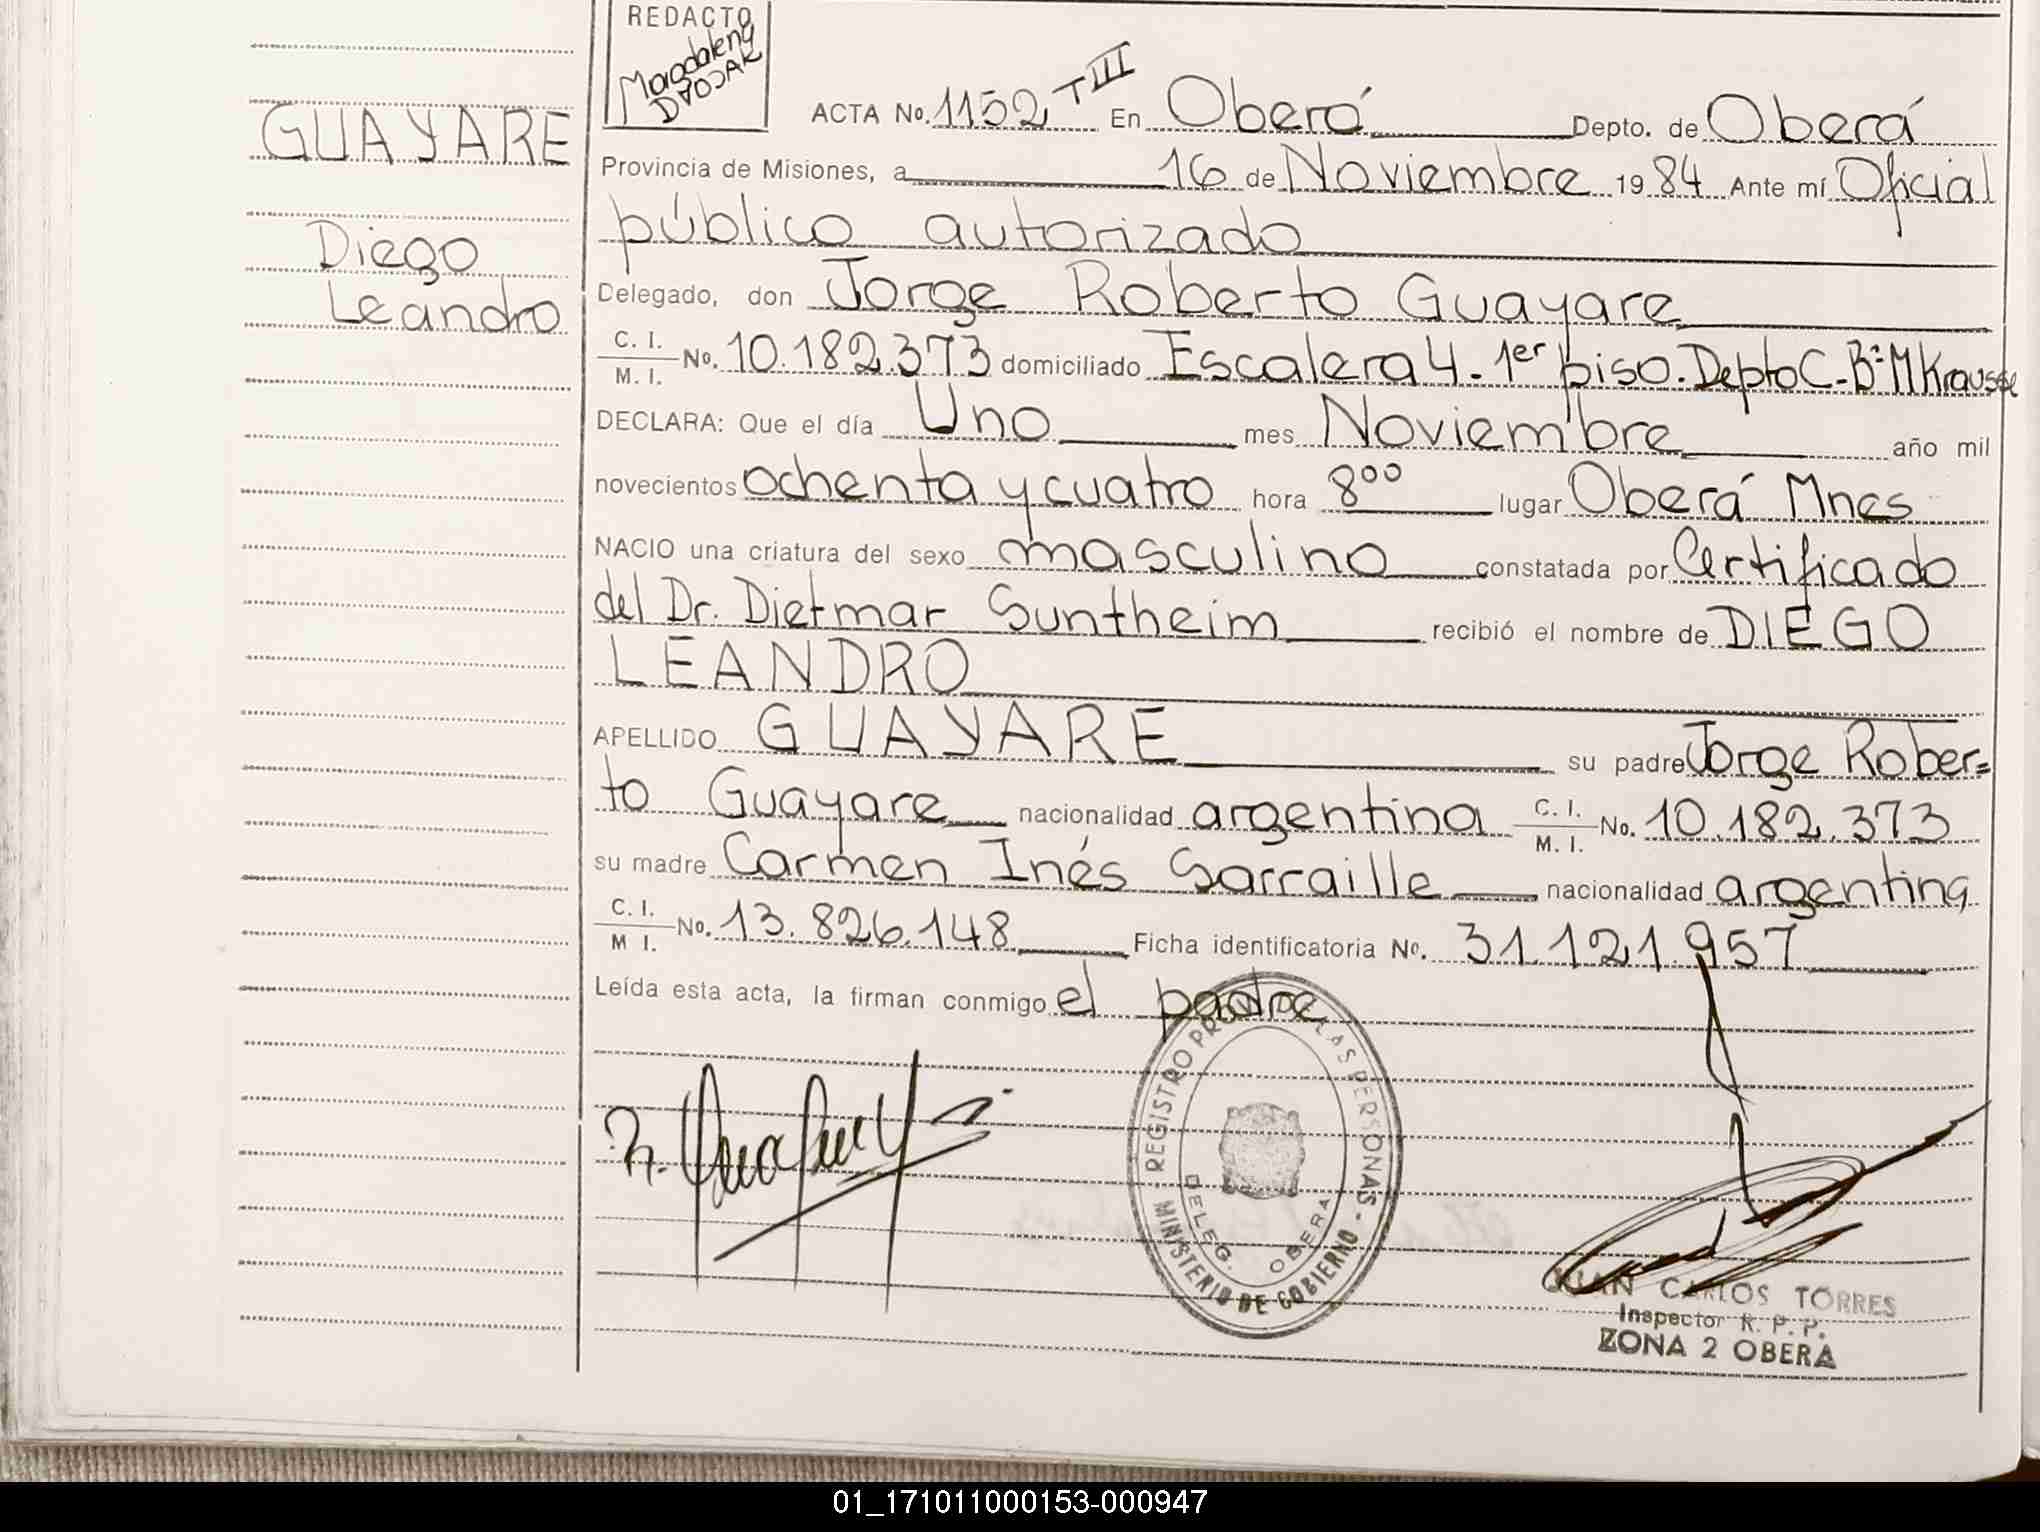 REDACTO
Magdalena
DVOJAK
ACTA No. 1152 TIII En Oberá Depto. de Oberá
GUAYARE
Provincia de Misiones, a 16 de Noviembre 1984 Ante mí Oficial
público autorizado
Diego
Leandro
Delegado, don Jorge Roberto Guayare
C. I.
M. I. No. 10.182.373 domiciliado Escalera 4. 1er piso. Depto C. Bº M Krausse
DECLARA: Que el día Uno mes Noviembre año mil
novecientos ochenta y cuatro hora 8⁰⁰ lugar Oberá Mnes
NACIO una criatura del sexo masculino constatada por Certificado
del Dr. Dietmar Suntheim recibió el nombre de DIEGO
LEANDRO
APELLIDO GUAYARE su padre Jorge Rober=
to Guayare nacionalidad argentina C. I. M. I. No. 10.182.373
su madre Carmen Inés Sarraille nacionalidad argentina
C. I.
M I. No. 13.826.148 Ficha identificatoria No. 31.121.957
Leída esta acta, la firman conmigo el padre
REGISTRO PROV. LAS PERSONAS
MINISTERIO DE GOBIERNO
DELEG. OBERA
JUAN CARLOS TORRES
Inspector R. P. P.
ZONA 2 OBERA
01_171011000153-000947